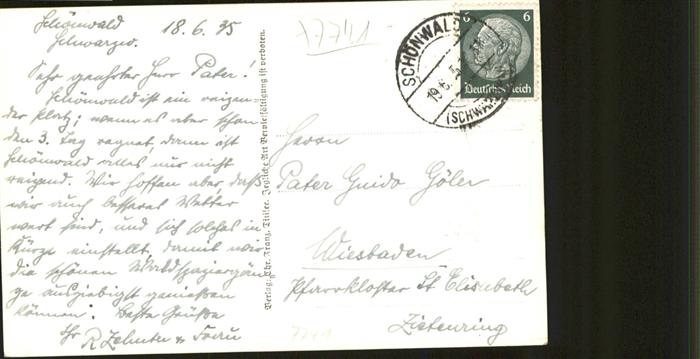 Schönwald 18.6.35
Schwarzw.
Sehr geehrter Herr Pater!
Schönwald ist ein reizen-
der Platz; wenn es aber schon
den 3. Tag regnet, dann ist
Schönwald alles nur nicht
reizend. Wir hoffen aber, daß
wir auch besseres Wetter
wert sind, und sich solches in
Kürze einstellt, damit wir
die schönen Waldspaziergän-
ge ausgiebigst genießen
können! Beste Grüße
Ihr R. Zehnter u. Frau
Verlag Chr. Franz, Titisee. Jegliche Art Vervielfältigung ist verboten.
77741
SCHÖNWALD
19.6.
(SCHWARZW
6 6
Deutsches Reich
Herrn
Pater Guido Göler
Wiesbaden
Pfarrkloster St Elisabeth
Zietenring
7741